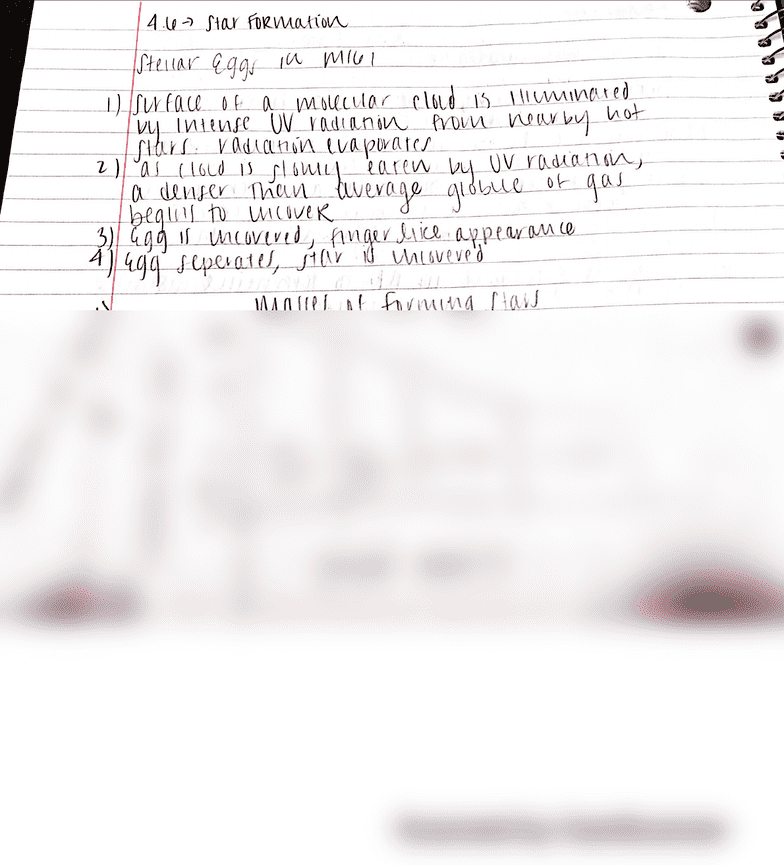 4.6 → Star Formation
Stellar Eggs in M16
1) Surface of a molecular cloud is illuminated
by intense UV radiation from nearby hot
stars. radiation evaporates
2) as cloud is slowly eaten by UV radiation,
a denser than average globule of gas
begins to uncover
3) Egg is uncovered, finger like appearance
4) Egg seperates, star is uncovered
Masses of forming stars